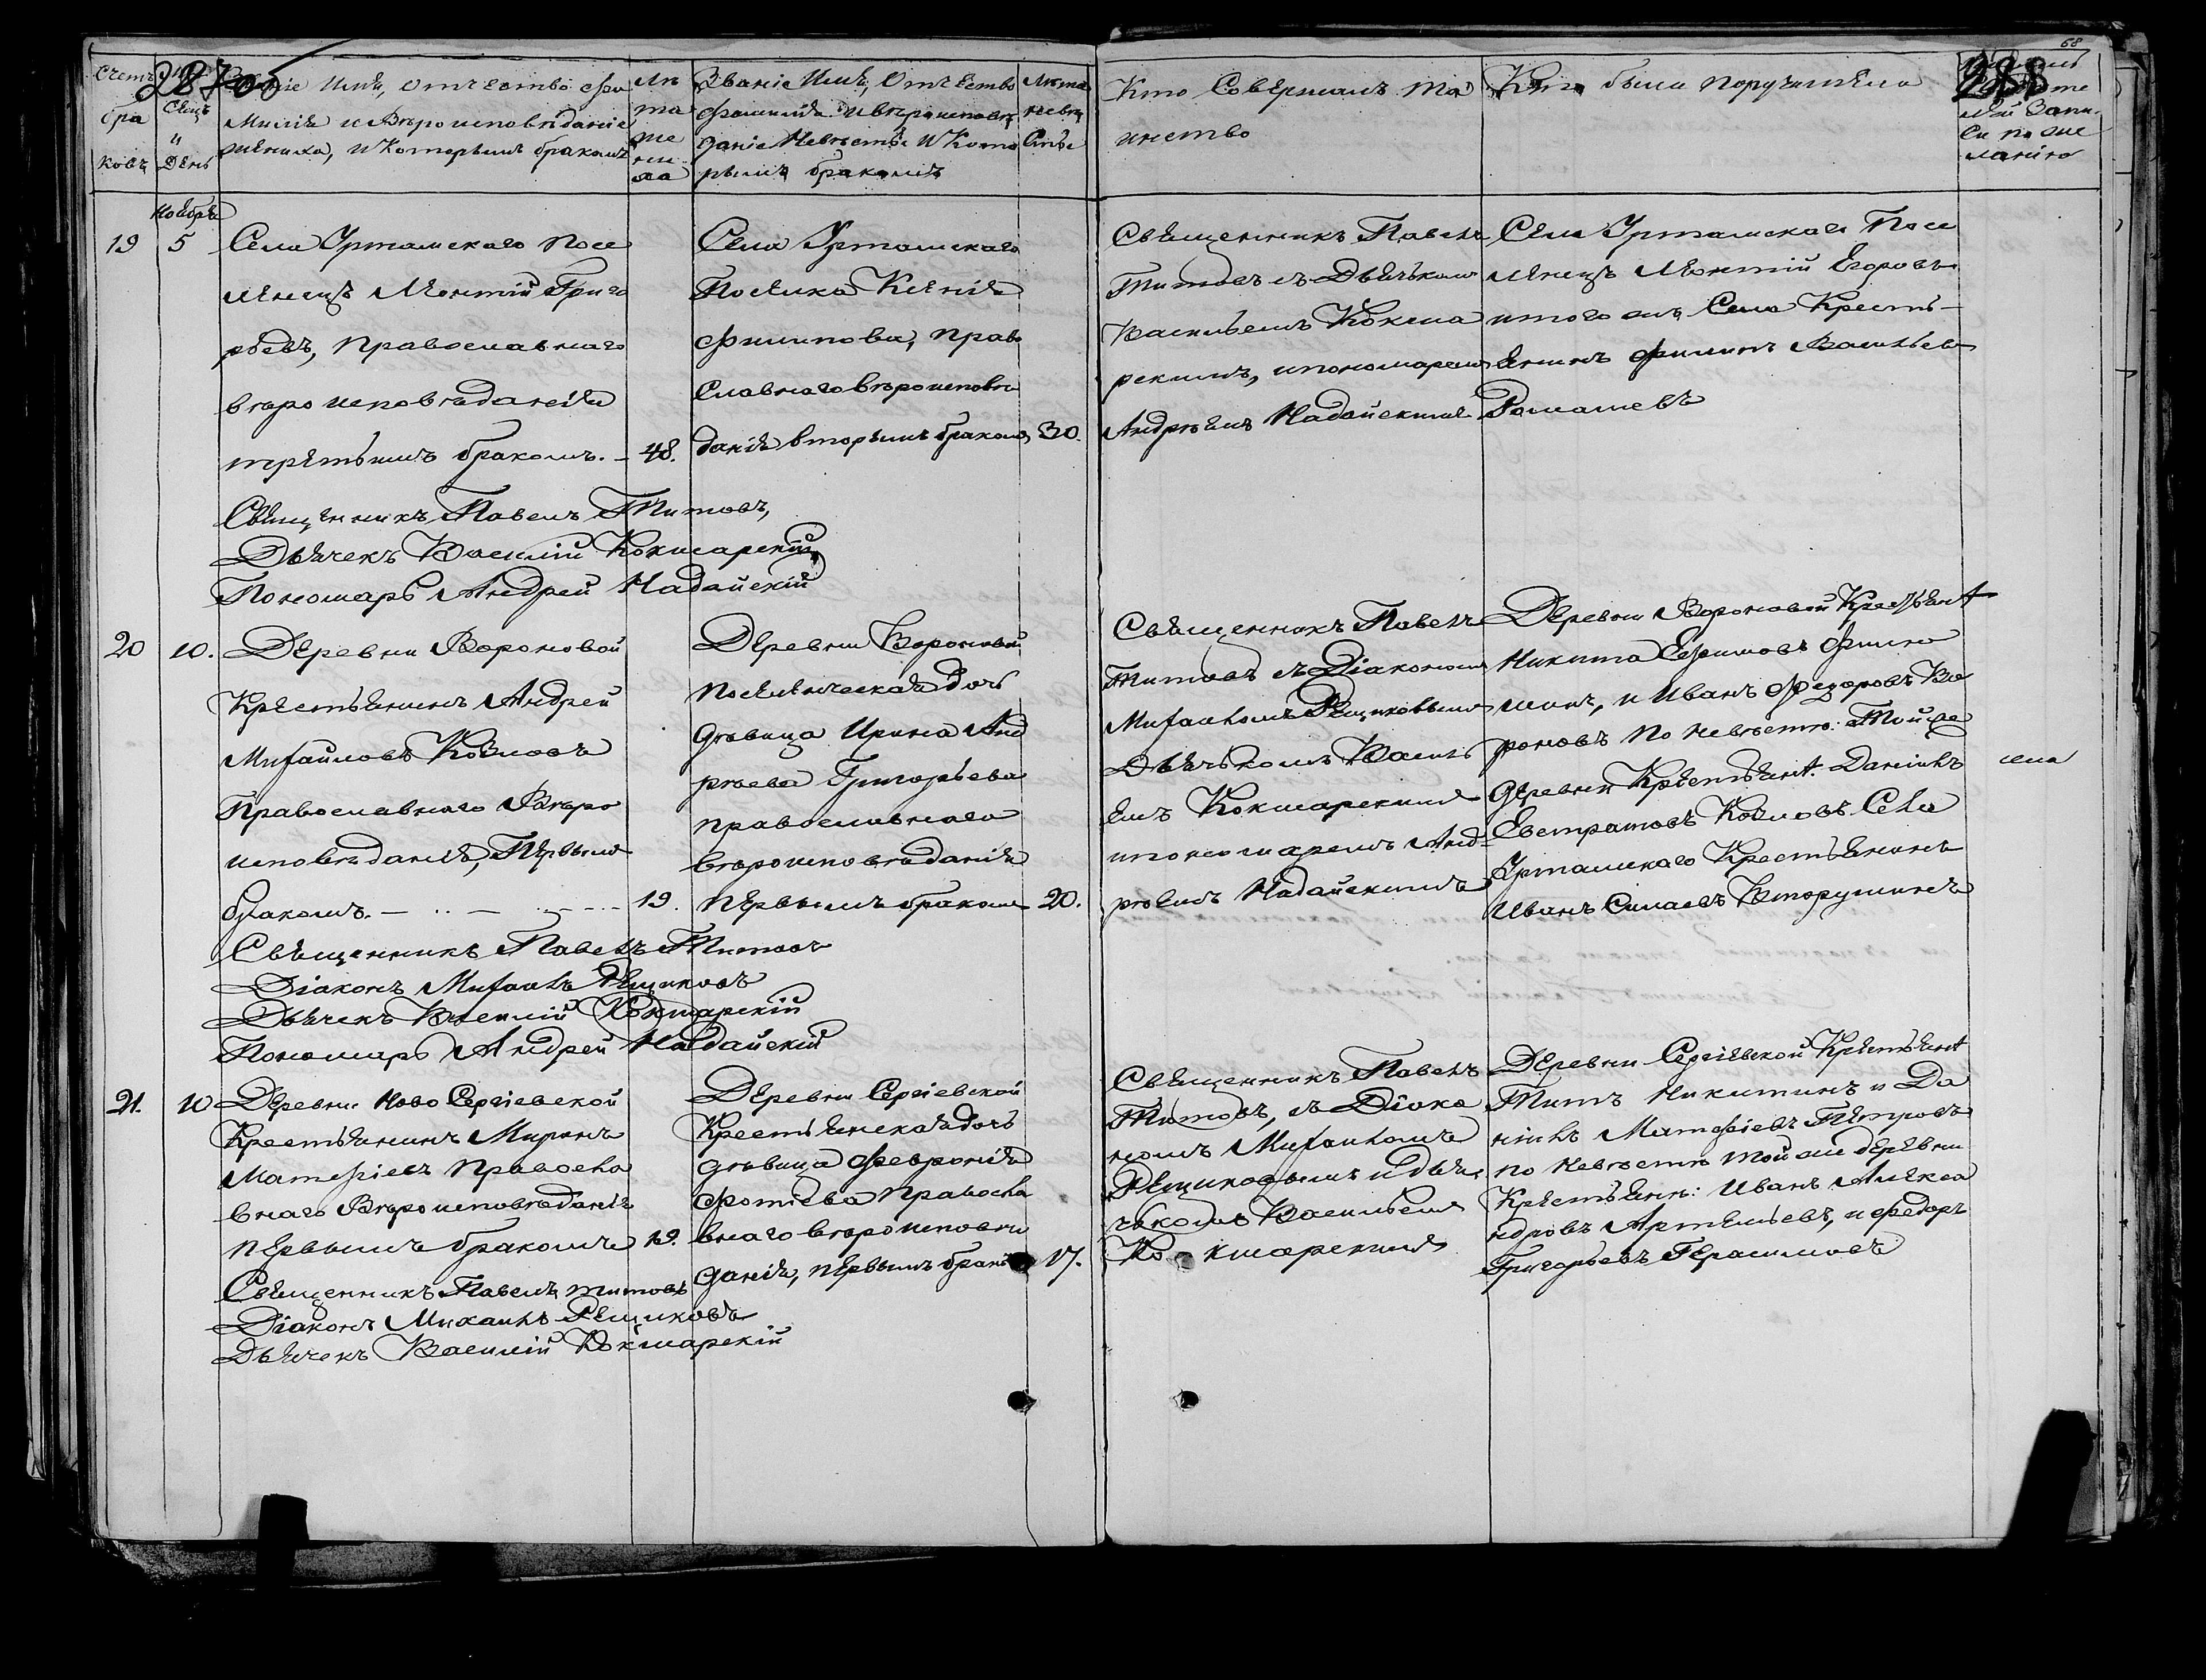 68
287об
288
Счетъ
бра
ковъ
Мѣ
сяцъ
и
День
Званіе Имя, Отчество Фа
милія и Вѣроисповѣданіе
жениха, и Которымъ бракомъ
Лѣ
та
же
ни
ха
Званіе Имя, Отчество
фамилія и вѣроисповѣ
даніе Невѣсты и Кото
рымъ бракомъ
Лѣта
невѣ
сты
Кто Совершалъ Та
инство
Кто были поручители
лей Запи
си по же
ланію
Ноября
19
5
Села Уртамскаго Посе
ленецъ Леонтій Григо
рьевъ, Православнаго
вѣроисповѣданія
третьимъ бракомъ. –
48.
Села Уртамскаго
Поселка Ксенія
Филипова, Право
славнаго вѣроисповѣ
данія вторымъ бракомъ
30.
Священникъ Павелъ
Титовъ съ Дьячькомъ
Васильемъ Кокша
рскимъ, ипономаремъ
Андрѣемъ Надайскимъ
Села Уртамскаго Посе
ленецъ Леонтій Егоровъ
итого жъ Села Кресть–
янинъ Филипъ Васильев
Ромашевъ
Священникъ Павелъ Титовъ,
Дьячекъ Василій Кокшарскій
Пономарь Андрей Надайскій
20
10.
Деревни Вороновой
Крестьянинъ Андрей
Михайловъ Козловъ
Православнаго Вѣро
исповѣданія, Первымъ
бракомъ. –
19.
Деревни Вороновой
поселенческая дочь
дѣвица Ирина Анд
рѣева Григорьева
православнаго
вѣроисповѣданія
первымъ бракомъ
20.
Священникъ Павелъ
Титовъ съ Діакономъ
Михаиломъ Рещиковымъ
Дьячькомъ Василь
емъ Кокшарскимъ
ипономаремъ Анд–
рѣемъ Надайскимъ
Деревни Вороновой Крестьян
Никита Ефимовъ Филю
шинъ, и Иванъ Федоровъ Во
роновъ По невѣстѣ: Той же
деревни Крестьян. Даніилъ
Евстратовъ Козловъ Села
Уртамскаго Крестьянинъ
Иванъ Силаевъ Вторушинъ
Священникъ Павелъ Титовъ
Діаконъ Михаилъ Рещиковъ
Дьячекъ Василій Кокшарскій
Пономарь Андрей Надайскій
21.
10
Деревни Ново Сергіевской
Крестьянинъ Миронъ
Матфіевъ Правосла
внаго Вѣроисповѣданія
первымъ бракомъ
19.
Деревни Сергіевской
Крестьянская дочь
дѣвица Февронія
Фотіева Правосла
внаго вѣроисповѣ
данія, первымъ брак
17.
Священникъ Павелъ
Титовъ, съ Діако
номъ Михаиломъ
Рещиковымъ и дья
чькомъ Васильемъ
Кокшарскимъ
Деревни Сергіевской Крестьян
Титъ Никитинъ и Да
ніилъ Матфіевъ Петровъ
по невѣстѣ той же деревни
Крестьяне: Иванъ Алекса
ндровъ Артемьевъ, и Федоръ
Григорьевъ Герасимовъ
Священникъ Павелъ Титовъ
Діаконъ Михаилъ Рещиковъ
Дьячекъ Василій Кокшарскій